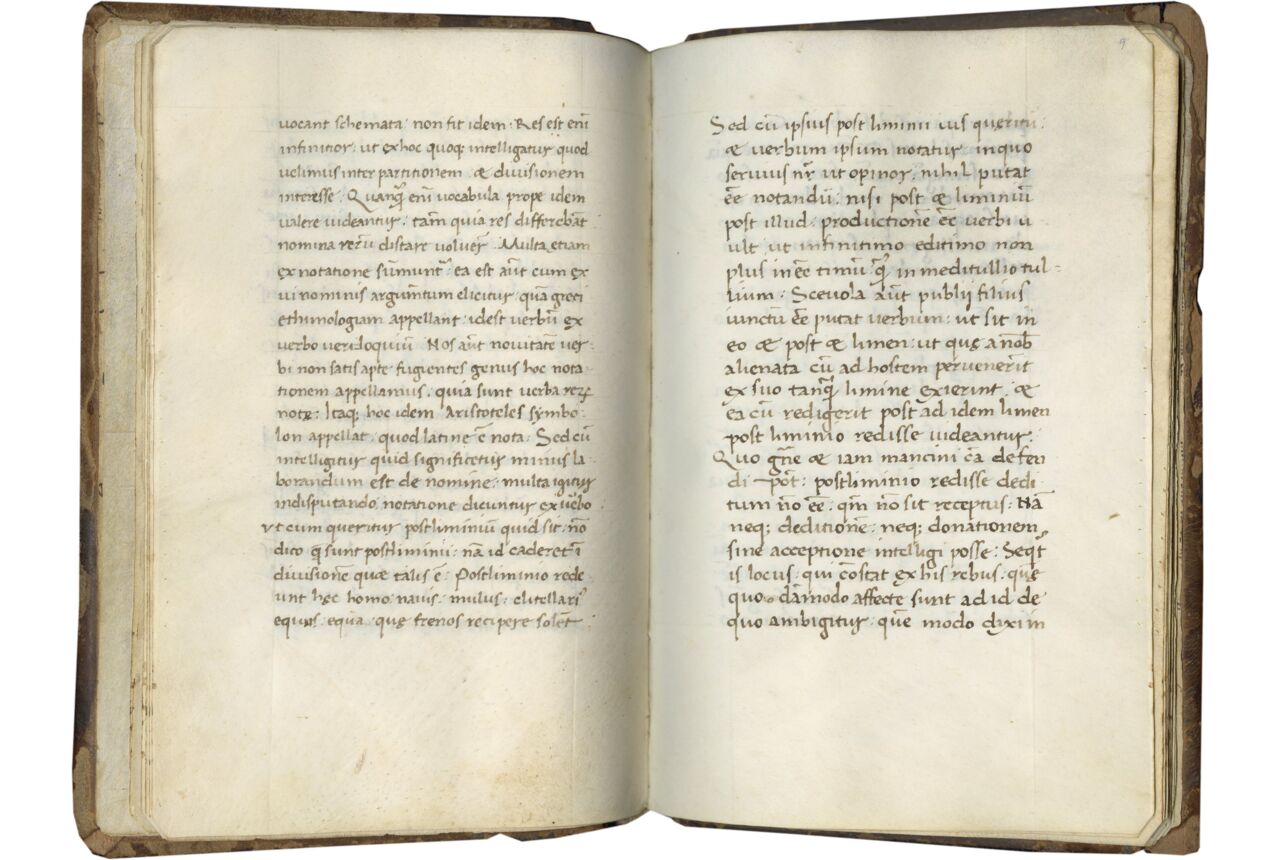 vocant schemata· non fit idem· Res est eni̅
infinitior· ut ex hoc quoq; intelligatur quod
uelimus inter partitionem & diuisionem
interesse· Quanq̅ eni̅ uocabula prope idem
valere uideantur· tam̅ quia res differeba̅t
nomina reru̅ distare voluer̅· Multa etiam
ex notatione su̅munt̅· ea est au̅t cum ex
vi nominis argum̅tum elicitur· qua̅ greci
ethimologiam appellant· idest verbu̅ ex
verbo veriloquiu̅· Nos au̅t nouitate̅ ver-
bi non satis apte fugientes genus hoc nota-
tionem appellamus· quia sunt uerba reꝝ
notę· Itaq; hoc idem Aristoteles symbo-
lon appellat· quod latine e̅ nota· Sed cu̅
intelligitur quid significetur minus la-
borandum est de nomine· multa igitur
in disputando notatione dicuntur ex ue̅bo
vt cum queritur postliminiu̅ quid sit· no̅
dico q̅ sunt postliminii· na̅ id caderet i̅
diuisione̅ quæ talis e̅· Postliminio rede-
unt hęc homo· nauis· mulus· clitellari᾽
equus· equa· quę frenos recipere sole̅t
9
Sed cu̅ ipsius post liminii ius queritu̅·
& verbum ipsum notatur· in quo
seruius nr̅ ut opinor· nihil putat
e̅e notandu̅· nisi post & liminiu̅
post illud· productione̅ e̅e verbi u
ult ut in finitimo editimo non
plus ine̅e timu̅· q̅ in meditullio tul-
lium· Sceuola au̅t publii filius
iunctu̅ e̅e putat uerbum· ut sit in
eo & post & limen· ut quę a nob̅
alienata cu̅ ad hostem peruenerit
ex suo tanq̅ limine exierint· &
ea cu̅ redigerit post ad idem limen
post liminio redisse uideantur·
Quo gn̅e & iam mancini ca̅ defen
di po̅t· postliminio redisse dedi
tum no̅ e̅e· qm̅ no̅ sit receptus· Na̅
neq; deditione̅· neq; donationem
sine acceptione intelligi posse· Seqt᾽
is locus· qui co̅stat ex his rebus· quę
quo da̅modo affecte sunt ad id de
quo ambigitur· que̅ modo dixi m